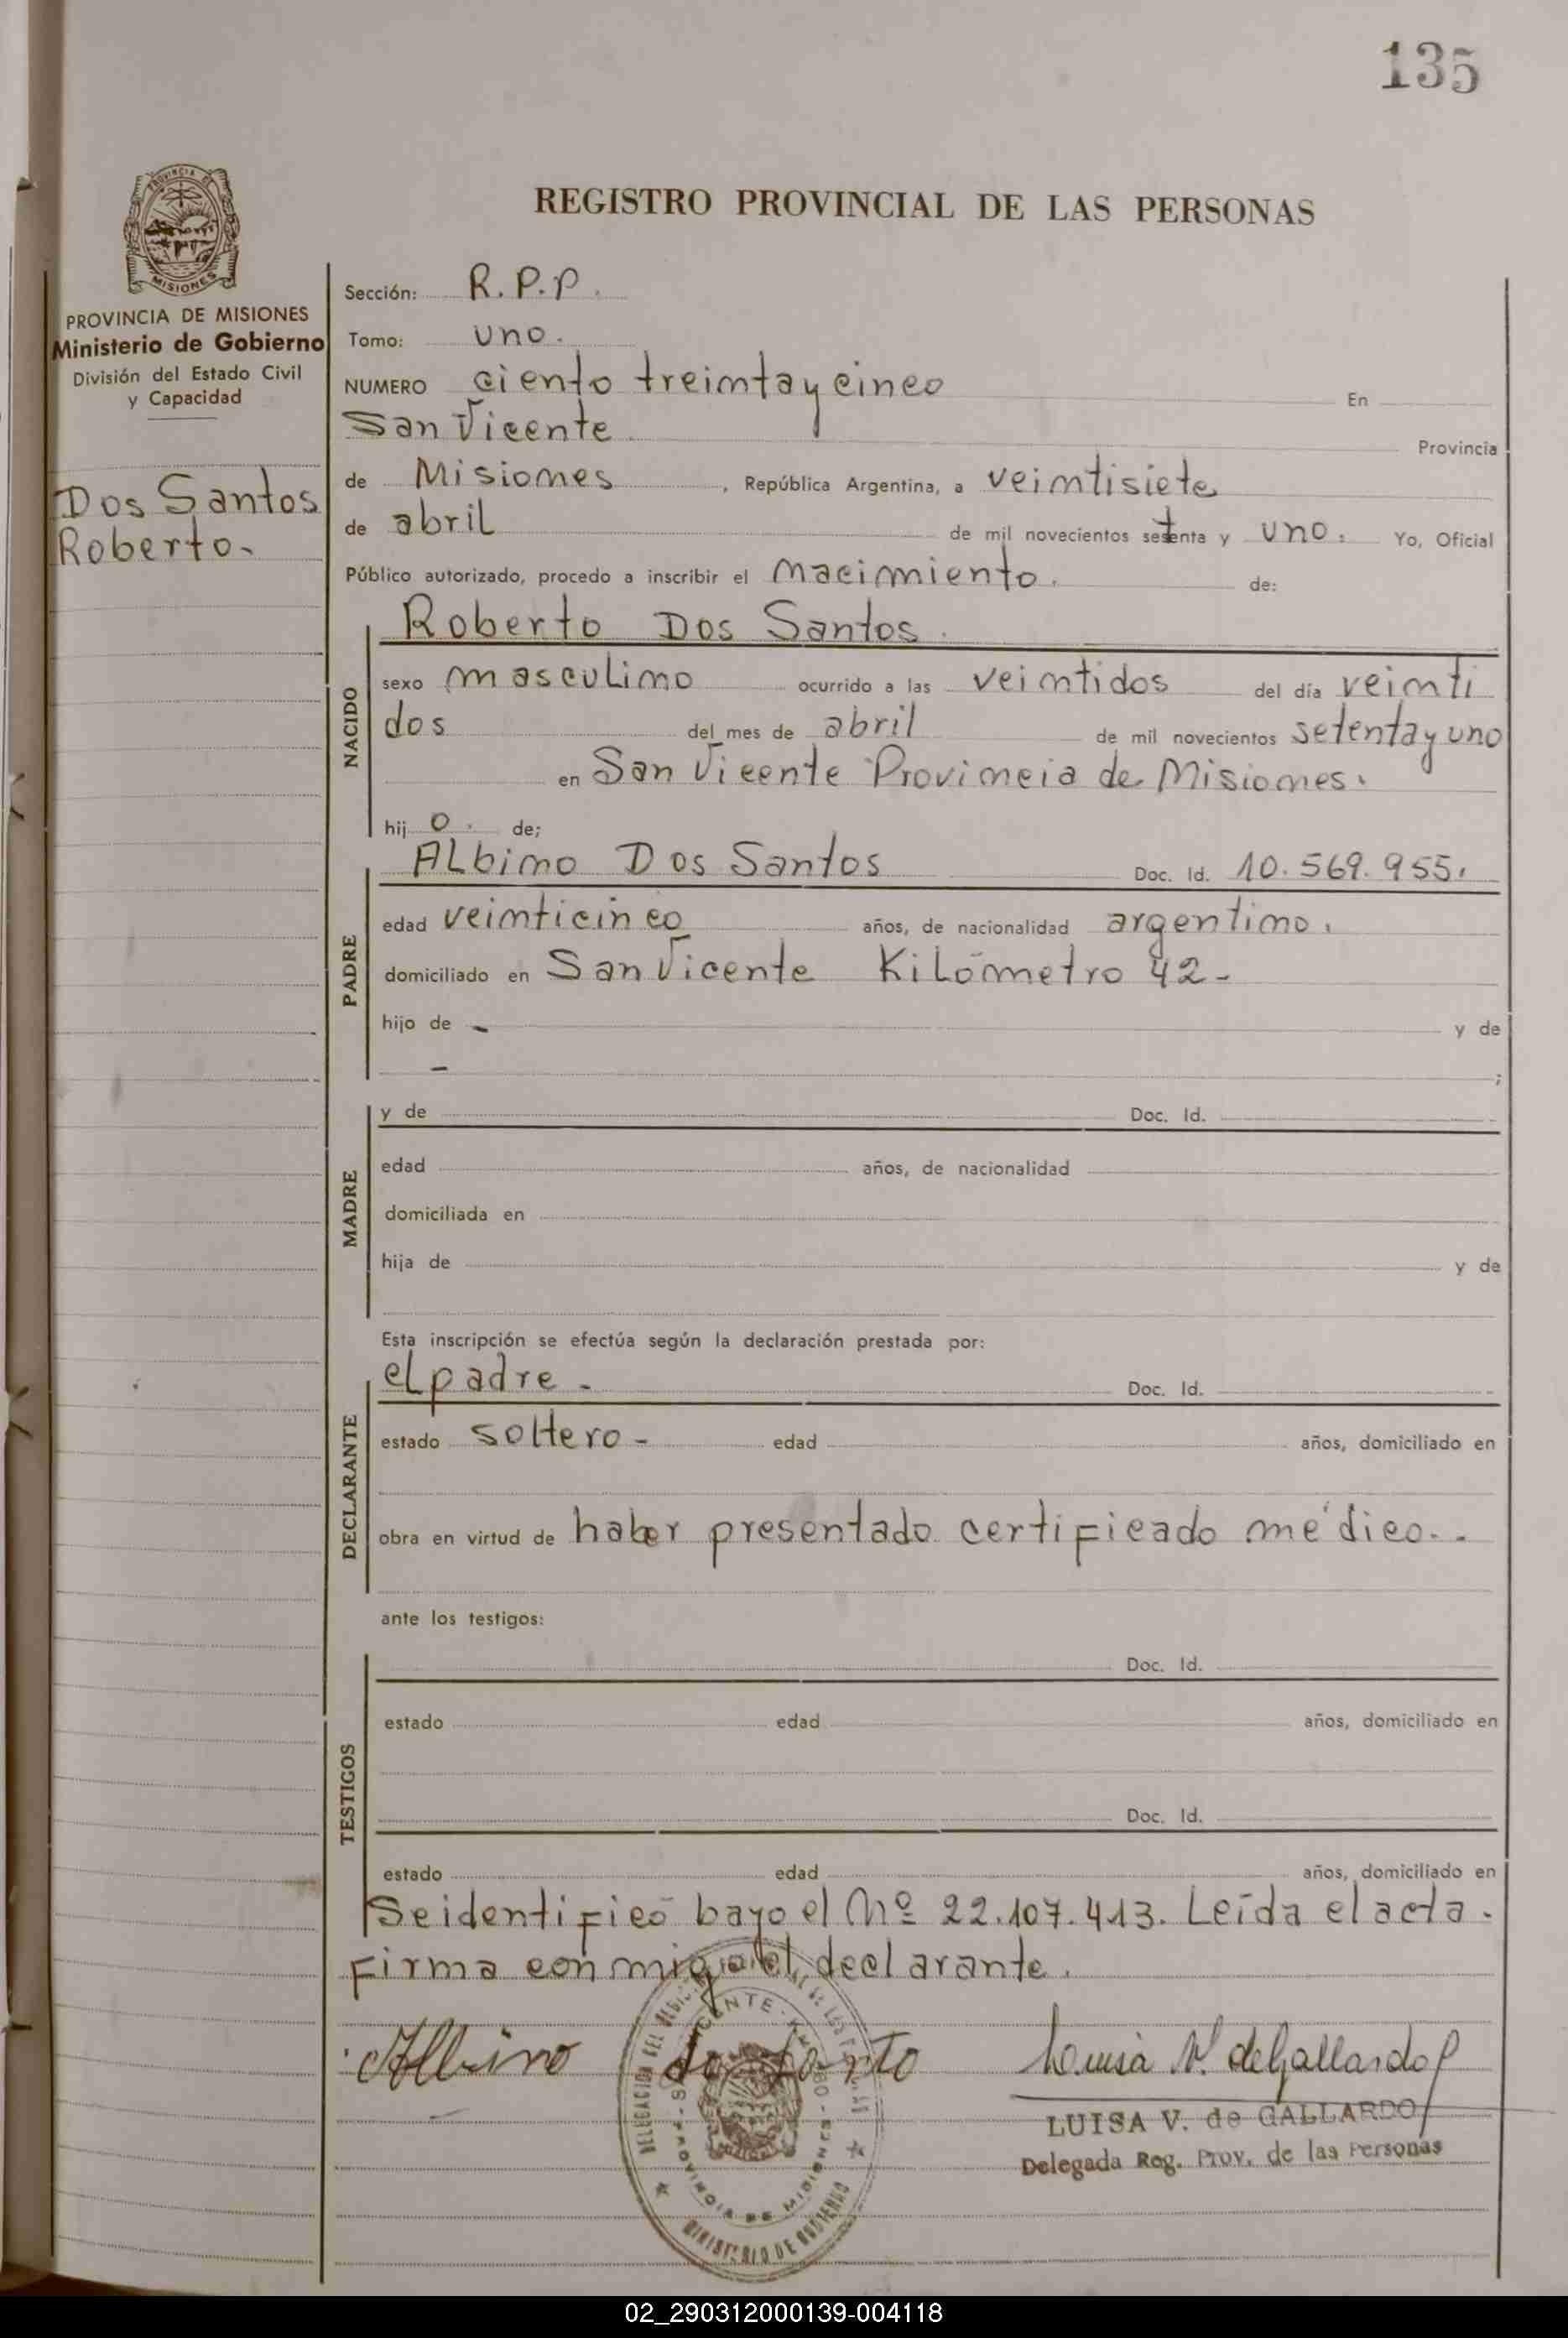 135
REGISTRO PROVINCIAL DE LAS PERSONAS
MISIONES
PROVINCIA DE MISIONES
Ministerio de Gobierno
División del Estado Civil
y Capacidad
Dos Santos
Roberto-
Sección: R.P.P.
Tomo: uno.
NUMERO ciento treinta y cinco En
San Vicente Provincia
de Misiones, República Argentina, a veintisiete
de abril de mil novecientos setenta y uno. Yo, Oficial
Público autorizado, procedo a inscribir el nacimiento. de:
NACIDO
Roberto Dos Santos.
sexo masculino ocurrido a las veintidos del día veinti
dos del mes de abril de mil novecientos setenta y uno
en San Vicente Provincia de Misiones.
hij o. de;
PADRE
Albino Dos Santos Doc. Id. 10.569.955.
edad veinticinco años, de nacionalidad argentino.
domiciliado en San Vicente Kilómetro 42-
hijo de - y de
- ;
MADRE
y de Doc. Id.
edad años, de nacionalidad
domiciliada en
hija de y de
Esta inscripción se efectúa según la declaración prestada por:
DECLARANTE
el padre - Doc. Id.
estado soltero - edad años, domiciliado en
obra en virtud de haber presentado certificado médico..
ante los testigos:
TESTIGOS
Doc. Id.
estado edad años, domiciliado en
Doc. Id.
estado edad años, domiciliado en
Se identificó bayo el Nº 22.107.413. Leída el acta.
Firma conmigo el declarante.
Albino do Santo
Louisa V. de Gallardo
LUISA V. de GALLARDO
Delegada Reg. Prov. de las Personas
PROVINCIA DE MISIONES
MINISTERIO DE GOBIERNO
02_290312000139-004118